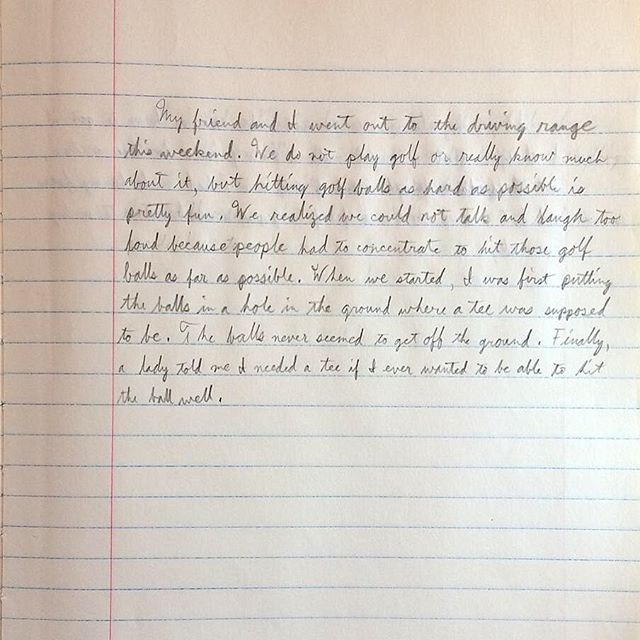 My friend and I went out to the driving range
this weekend. We do not play golf or really know much
about it, but hitting golf balls as hard as possible is
pretty fun. We realized we could not talk and laugh too
loud because people had to concentrate to hit those golf
balls as far as possible. When we started, I was first putting
the balls in a hole in the ground where a tee was supposed
to be. The balls never seemed to get off the ground. Finally,
a lady told me I needed a tee if I ever wanted to be able to hit
the ball well.